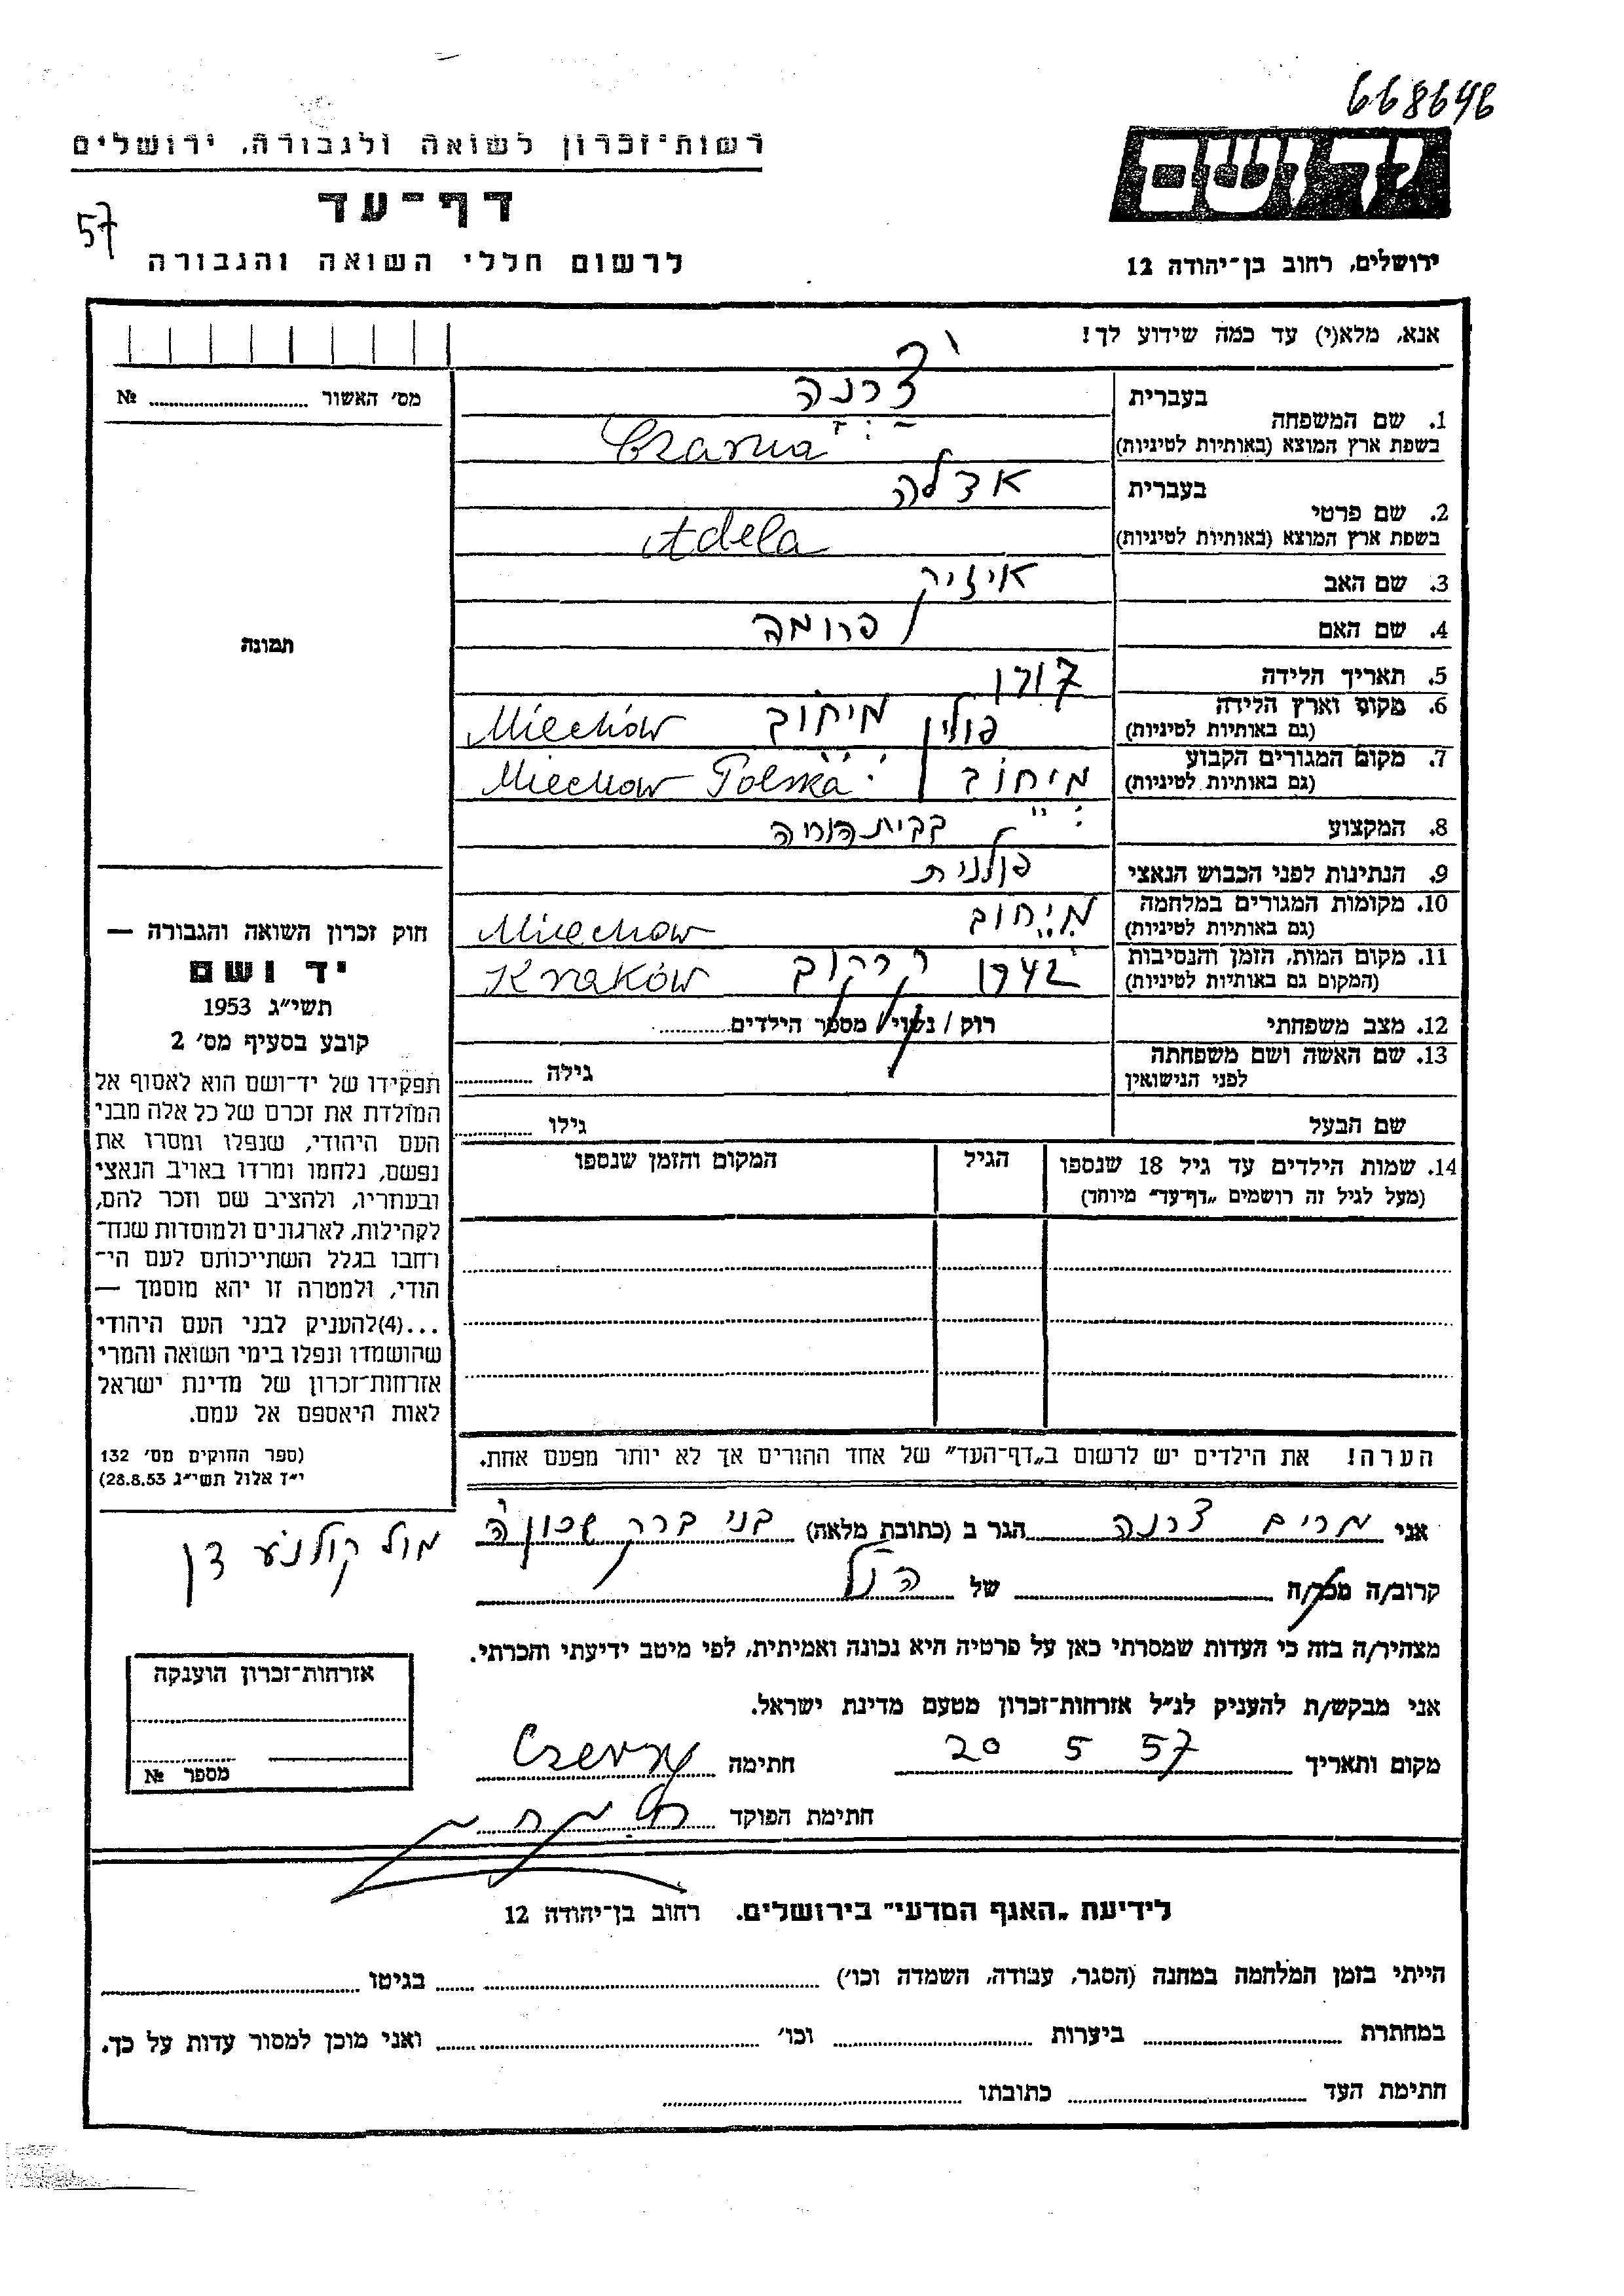 668646
רשות־זכרון לשואה ולגבורה, ירושלים
יד ושם
דף־עד
57
לרשום חללי השואה והגבורה
ירושלים, רחוב בן־יהודה 12
אנא, מלא(י) עד כמה שידוע לך!
מס׳ האשור № 
1. שם המשפחה
בעברית צ׳רנה
בשפת ארץ המוצא (באותיות לטיניות) Czarna
2. שם פרטי
בעברית אדלה
בשפת ארץ המוצא (באותיות לטיניות) Adela
3. שם האב איזיק
4. שם האם פרומה
תמונה
5. תאריך הלידה
6. מקום וארץ הלידה
(גם באותיות לטיניות) פולין מיחוב Miechów
7. מקום המגורים הקבוע
(גם באותיות לטיניות) מיחוב Miechow Polska
8. המקצוע
9. הנתינות לפני הכבוש הנאצי פולנית
10. מקומות המגורים במלחמה
(גם באותיות לטיניות) מיחוב Miechow
11. מקום המות, הזמן והנסיבות
(המקום גם באותיות לטיניות) קרקוב Kraków
12. מצב משפחתי רוק / נשוי / מספר הילדים
13. שם האשה ושם משפחתה
לפני הנישואין גילה
שם הבעל גילו
חוק זכרון השואה והגבורה —
יד ושם
תשי״ג 1953
קובע בסעיף מס׳ 2
תפקידו של יד־ושם הוא לאסוף אל
המולדת את זכרם של כל אלה מבני
העם היהודי, שנפלו ומסרו את
נפשם, נלחמו ומרדו באויב הנאצי
ובעוזריו, ולהציב שם וזכר להם,
לקהילות, לארגונים ולמוסדות שנח־
רחבו בגלל השתייכותם לעם הי־
הודי, ולמטרה זו יהא מוסמך —
...(4)להעניק לבני העם היהודי
שהושמדו ונפלו בימי השואה והמרי
אזרחות־זכרון של מדינת ישראל
לאות היאספם אל עמם.
(ספר החוקים מס׳ 132
י״ז אלול תשי״ג 28.8.53)
14. שמות הילדים עד גיל 18 שנספו
(מעל לגיל זה רושמים „דף־עד״ מיוחד)
הגיל
המקום והזמן שנספו
הערה! את הילדים יש לרשום ב„דף־העד״ של אחד ההורים אך לא יותר מפעם אחת.
אני מרים צרנה הגר ב (כתובת מלאה) בני ברק שכונה
מול קולנע דן
קרוב/ה מכר/ה של הנ״ל
מצהיר/ה בזה כי העדות שמסרתי כאן על פרטיה היא נכונה ואמיתית, לפי מיטב ידיעתי והכרתי.
אני מבקש/ת להעניק לנ״ל אזרחות־זכרון מטעם מדינת ישראל.
מקום ותאריך 20 5 57 חתימה Czerny
חתימת הפוקד
אזרחות־זכרון הוענקה
מספר №
לידיעת „האגף המדעי״ בירושלים. רחוב בן־יהודה 12
הייתי בזמן המלחמה במחנה (הסגר, עבודה, השמדה וכו׳) בגיטו
במחתרת ביערות וכו׳ ואני מוכן למסור עדות על כך.
חתימת העד כתובתו